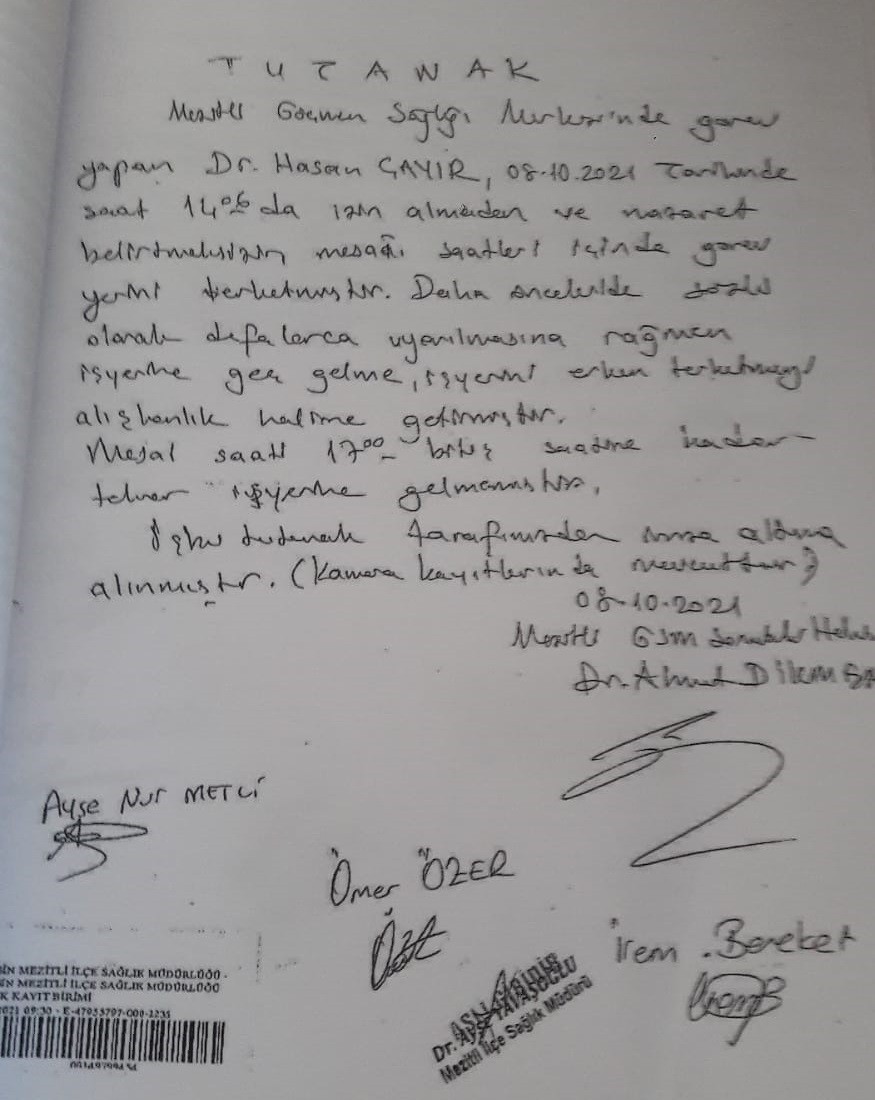 TUTANAK
Mezitli Göçmen Sağlığı Merkezi'nde görev
yapan Dr. Hasan ÇAYIR, 08.10.2021 Tarihinde
saat 14.06 da izin almadan ve mazaret
belirtmeksizin mesai saatleri içinde görev
yerini terketmiştir. Daha öncelerilde sözlü
olarak defalarca uyarılmasına rağmen
işyerine geç gelme, işyerini erken terketmeyi
alışkanlık haline getirmiştir.
Mesai saati 17.00 bitiş saatine kadar
tekrar işyerine gelmemiştir.
İşbu tutanak tarafımızdan imza altına
alınmıştır. (Kamera kayıtlarında mevcuttur)
08-10-2021
Mezitli GSM Sorumlu
Dr. Ahmet
Ayşe Nur METLİ
Ömer ÖZER
İrem Bereket
ASLI GİBİDİR
Dr. YAVAŞOĞLU
Mezitli İlçe Sağlık Müdürü
İN MEZİTLİ İLÇE SAĞLIK MÜDÜRLÜĞÜ -
İN MEZİTLİ İLÇE SAĞLIK MÜDÜRLÜĞÜ
K KAYIT BİRİMİ
2021 09:30 - E-47953797-000-2235